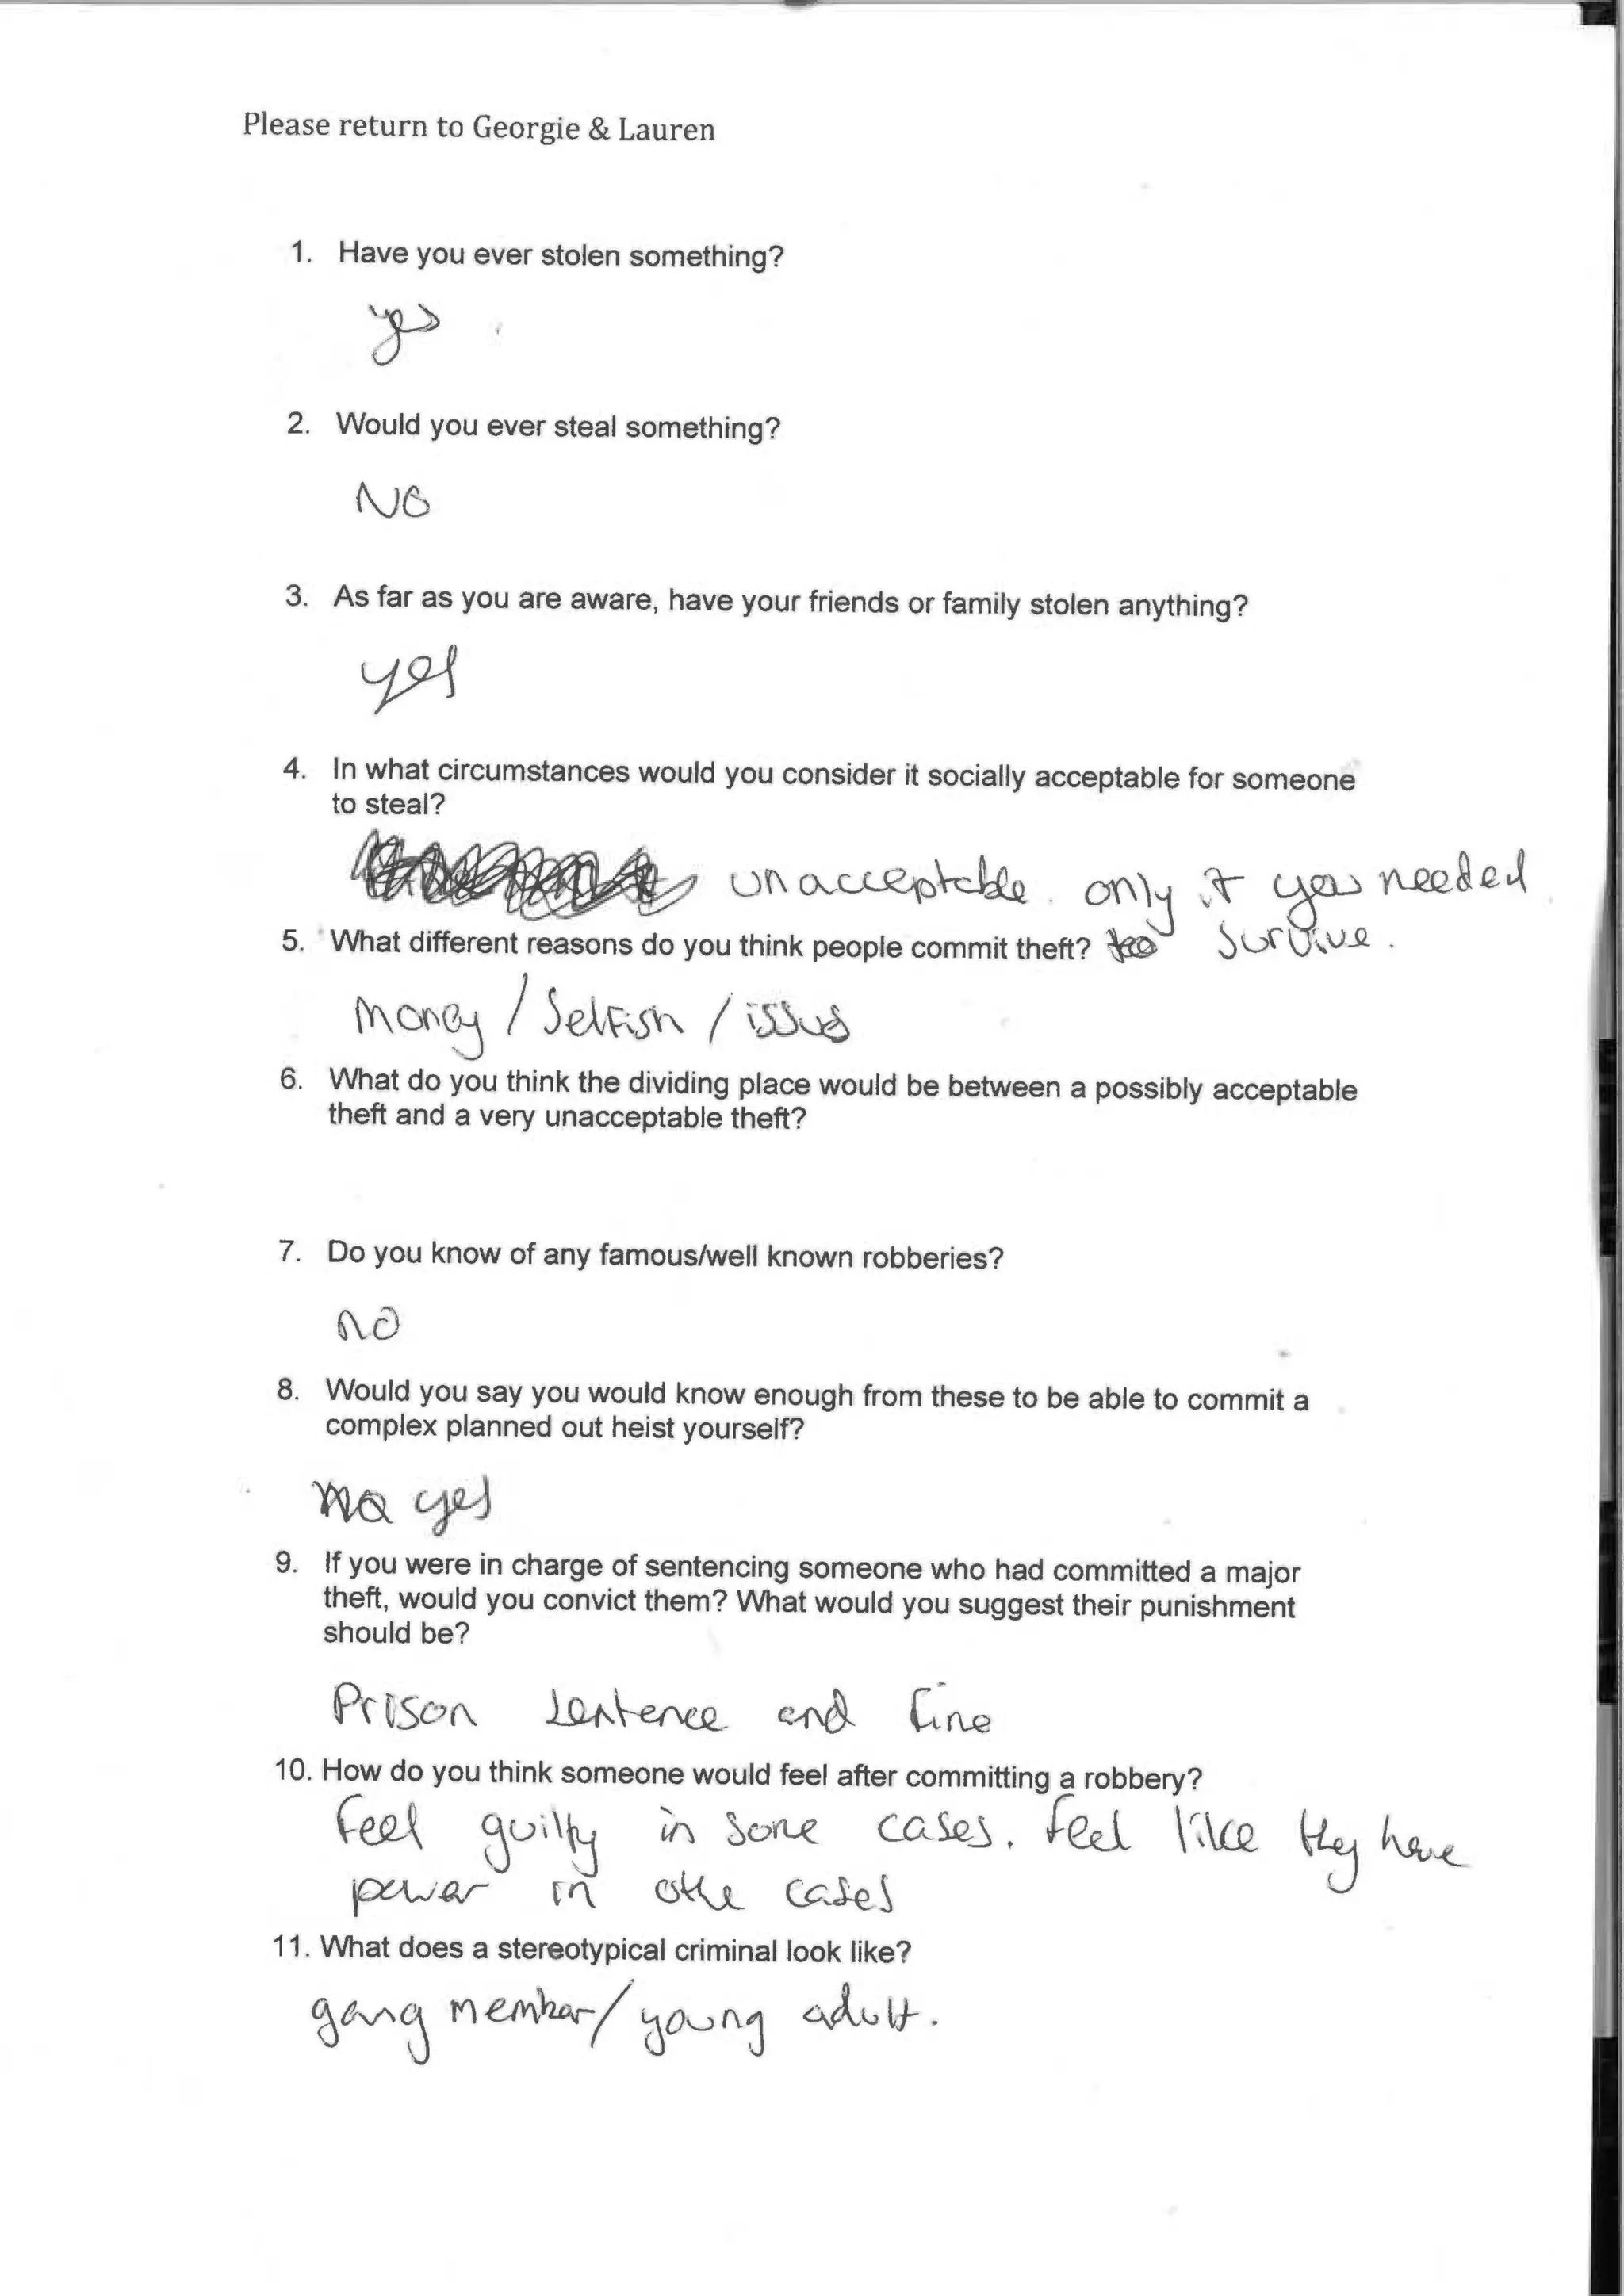 Please return to Georgie & Lauren
1. Have you ever stolen something?
yes
2. Would you ever steal something?
NO
3. As far as you are aware, have your friends or family stolen anything?
yes
4. In what circumstances would you consider it socially acceptable for someone
to steal?
unacceptable. only if you needed
5. What different reasons do you think people commit theft? too survive.
Money / Selfish / issus
6. What do you think the dividing place would be between a possibly acceptable
theft and a very unacceptable theft?
7. Do you know of any famous/well known robberies?
no
8. Would you say you would know enough from these to be able to commit a
complex planned out heist yourself?
yes
9. If you were in charge of sentencing someone who had committed a major
theft, would you convict them? What would you suggest their punishment
should be?
Prison sentence and fine
10. How do you think someone would feel after committing a robbery?
Feel guilty in some cases. Feel like they have
power in othe cases
11. What does a stereotypical criminal look like?
gang member/young adult.